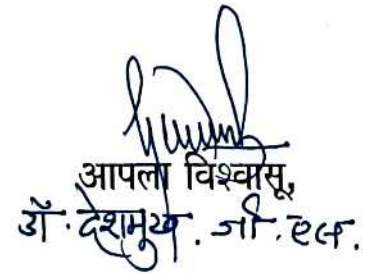 आपला विश्वासू,
डॉ. देशमुख. जी. एल.